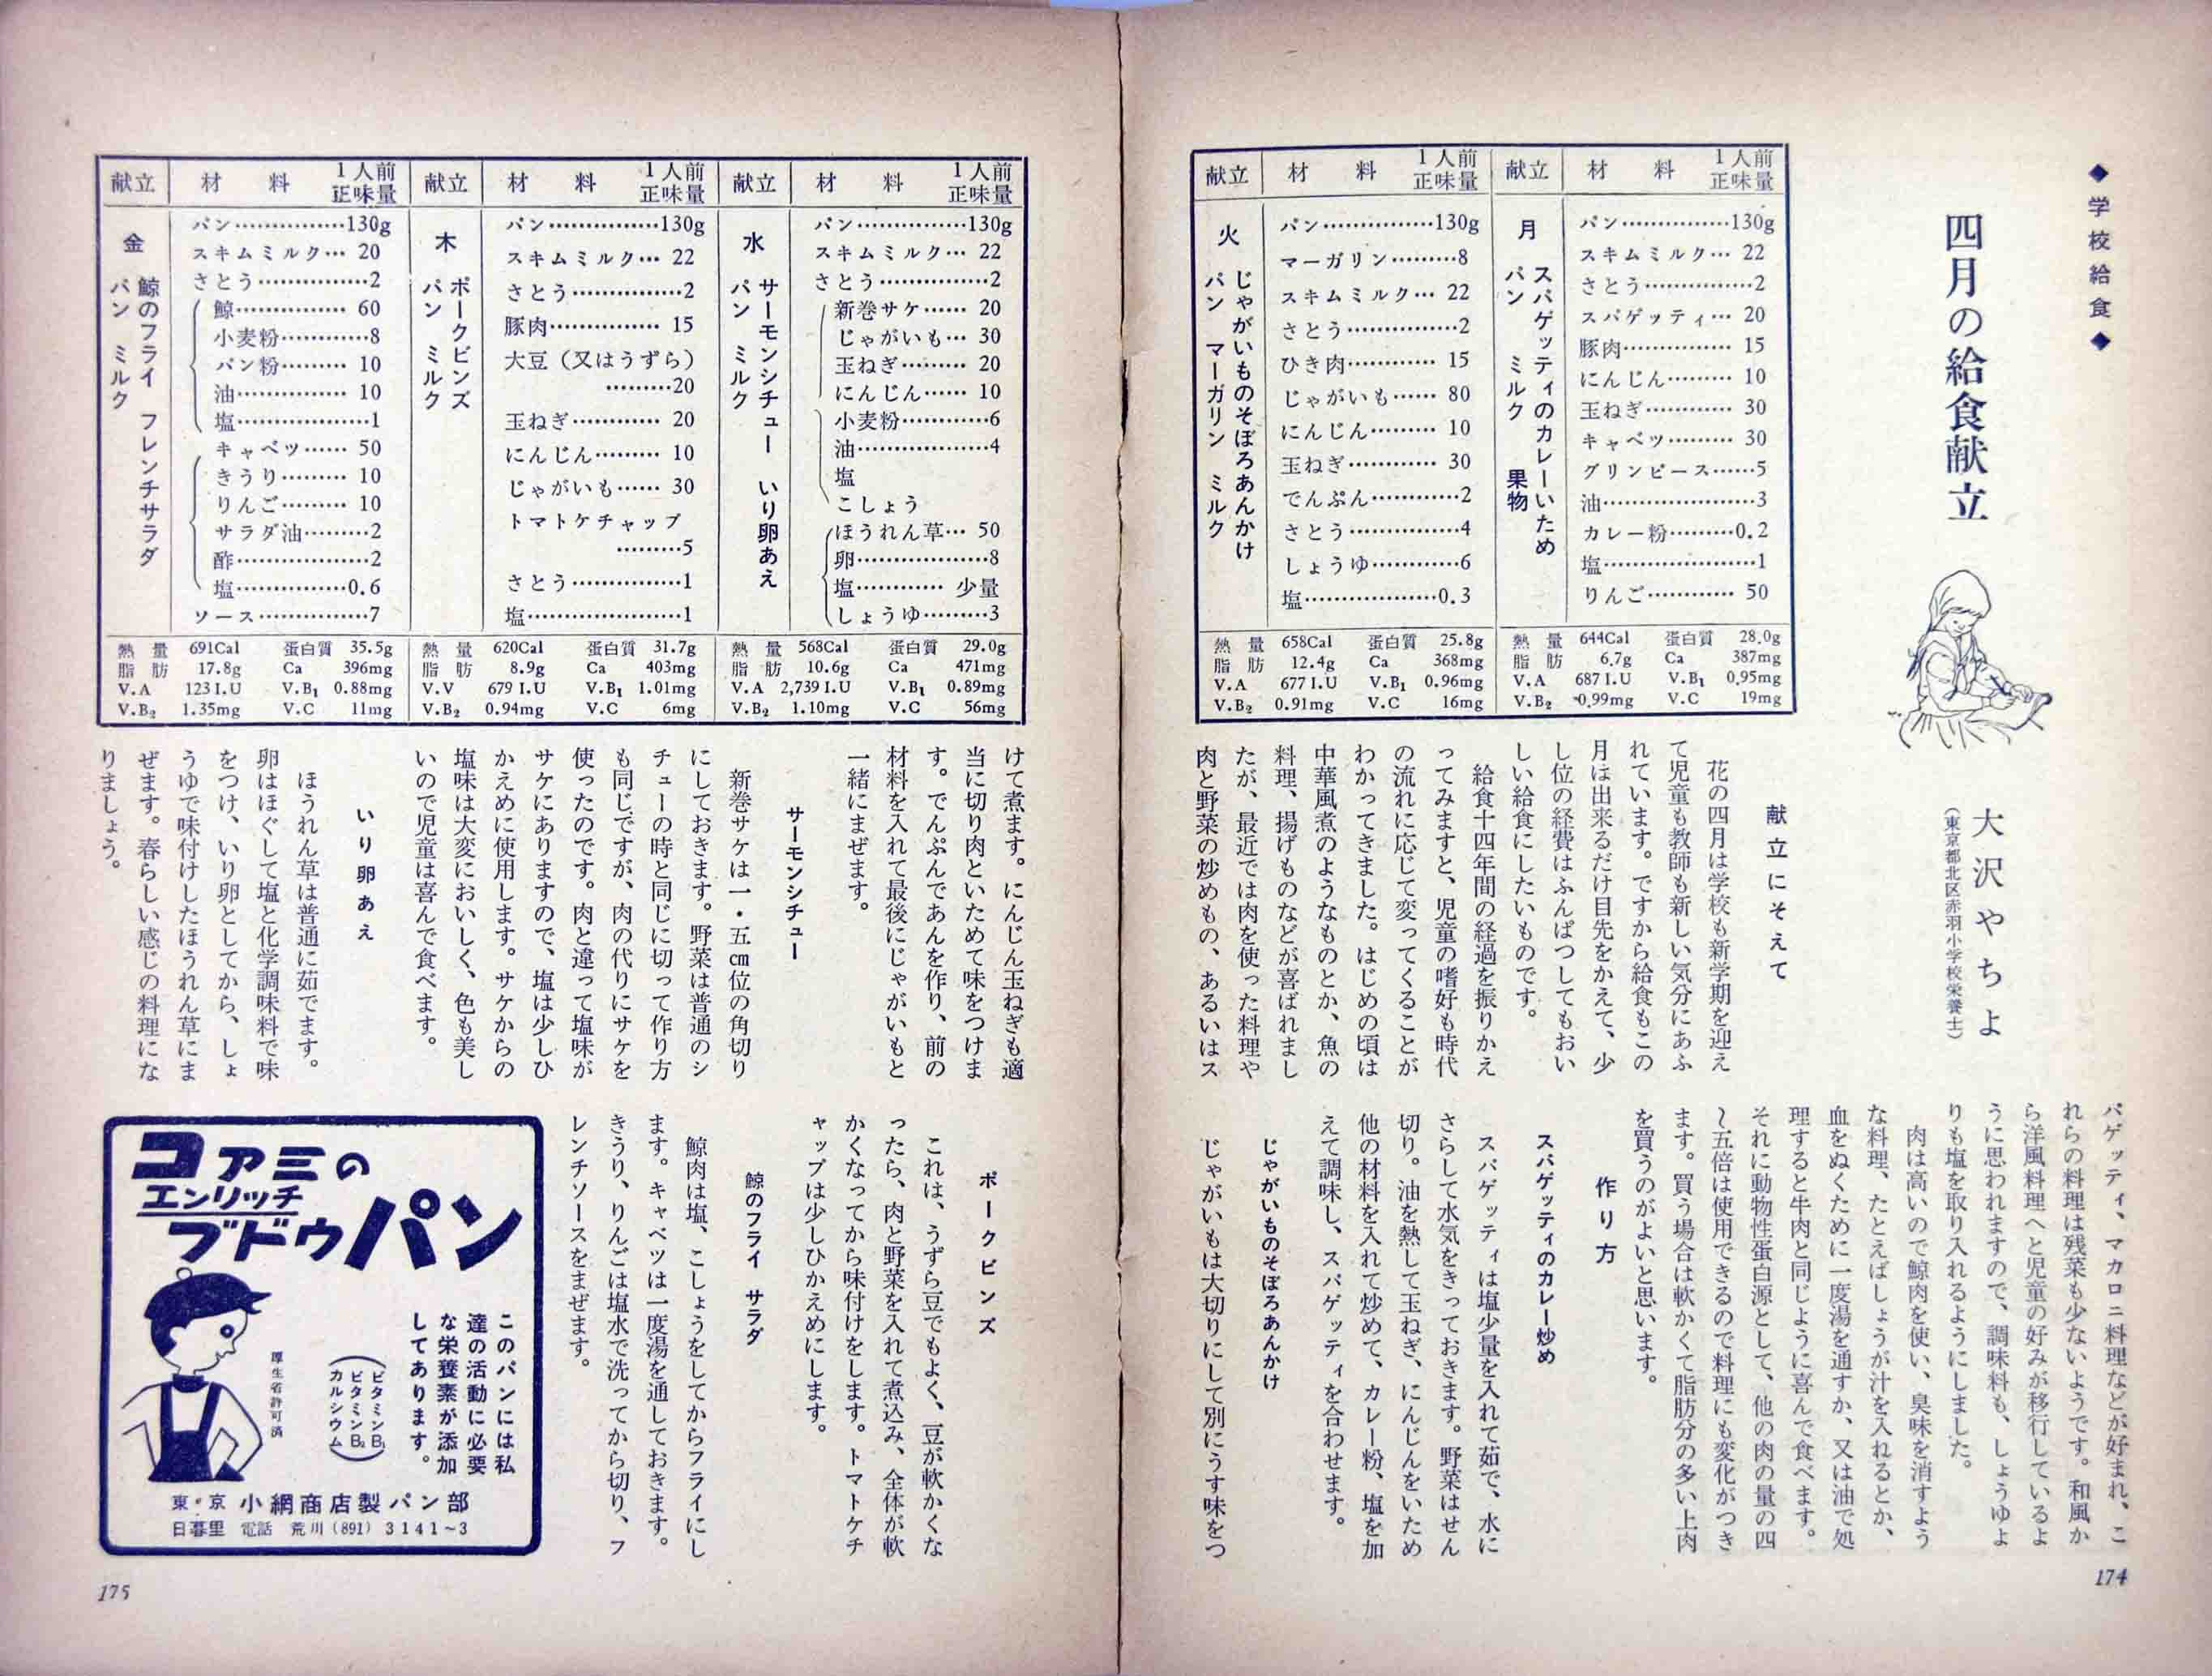 ◆学校給食◆
四月の給食献立
大沢やちよ
（東京都北区赤羽小学校栄養士）
献立 材料 1人前正味量
月
スパゲッティのカレーいため
パン ミルク 果物
パン……………130g
スキムミルク… 22
さとう……………2
スパゲッティ… 20
豚肉…………… 15
にんじん……… 10
玉ねぎ………… 30
キャベツ……… 30
グリンピース……5
油…………………3
カレー粉………0.2
塩…………………1
りんご………… 50
熱量 644Cal 蛋白質 28.0g
脂肪 6.7g Ca 387mg
V.A 687 I.U V.B₁ 0.95mg
V.B₂ 0.99mg V.C 19mg
献立 材料 1人前正味量
火
じゃがいものそぼろあんかけ
パン マーガリン ミルク
パン……………130g
マーガリン………8
スキムミルク… 22
さとう……………2
ひき肉………… 15
じゃがいも…… 80
にんじん……… 10
玉ねぎ………… 30
でんぷん…………2
さとう……………4
しょうゆ…………6
塩………………0.3
熱量 658Cal 蛋白質 25.8g
脂肪 12.4g Ca 368mg
V.A 677 I.U V.B₁ 0.96mg
V.B₂ 0.91mg V.C 16mg
献立にそえて
花の四月は学校も新学期を迎え
て児童も教師も新しい気分にあふ
れています。ですから給食もこの
月は出来るだけ目先をかえて、少
し位の経費はふんぱつしてもおい
しい給食にしたいものです。
給食十四年間の経過を振りかえ
ってみますと、児童の嗜好も時代
の流れに応じて変ってくることが
わかってきました。はじめの頃は
中華風煮のようなものとか、魚の
料理、揚げものなどが喜ばれまし
たが、最近では肉を使った料理や
肉と野菜の炒めもの、あるいはス
パゲッティ、マカロニ料理などが好まれ、こ
れらの料理は残菜も少ないようです。和風か
ら洋風料理へと児童の好みが移行しているよ
うに思われますので、調味料も、しょうゆよ
りも塩を取り入れるようにしました。
肉は高いので鯨肉を使い、臭味を消すよう
な料理、たとえばしょうが汁を入れるとか、
血をぬくために一度湯を通すか、又は油で処
理すると牛肉と同じように喜んで食べます。
それに動物性蛋白源として、他の肉の量の四
〜五倍は使用できるので料理にも変化がつき
ます。買う場合は軟かくて脂肪分の多い上肉
を買うのがよいと思います。
作り方
スパゲッティのカレー炒め
スパゲッティは塩少量を入れて茹で、水に
さらして水気をきっておきます。野菜はせん
切り。油を熱して玉ねぎ、にんじんをいため
他の材料を入れて炒めて、カレー粉、塩を加
えて調味し、スパゲッティを合わせます。
じゃがいものそぼろあんかけ
じゃがいもは大切りにして別にうす味をつ
174
献立 材料 1人前正味量
水
サーモンシチュー いり卵あえ
パン ミルク
パン……………130g
スキムミルク… 22
さとう……………2
新巻サケ…… 20
じゃがいも… 30
玉ねぎ……… 20
にんじん…… 10
小麦粉…………6
油………………4
塩
こしょう
ほうれん草… 50
卵………………8
塩………… 少量
しょうゆ………3
熱量 568Cal 蛋白質 29.0g
脂肪 10.6g Ca 471mg
V.A 2,739 I.U V.B₁ 0.89mg
V.B₂ 1.10mg V.C 56mg
献立 材料 1人前正味量
木
ポークビンズ
パン ミルク
パン……………130g
スキムミルク… 22
さとう……………2
豚肉…………… 15
大豆（又はうずら）
………20
玉ねぎ………… 20
にんじん……… 10
じゃがいも…… 30
トマトケチャップ
………5
さとう……………1
塩…………………1
熱量 620Cal 蛋白質 31.7g
脂肪 8.9g Ca 403mg
V.V 679 I.U V.B₁ 1.01mg
V.B₂ 0.94mg V.C 6mg
献立 材料 1人前正味量
金
鯨のフライ フレンチサラダ
パン ミルク
パン……………130g
スキムミルク… 20
さとう……………2
鯨…………… 60
小麦粉…………8
パン粉……… 10
油…………… 10
塩………………1
キャベツ…… 50
きうり……… 10
りんご……… 10
サラダ油………2
酢………………2
塩……………0.6
ソース……………7
熱量 691Cal 蛋白質 35.5g
脂肪 17.8g Ca 396mg
V.A 123 I.U V.B₁ 0.88mg
V.B₂ 1.35mg V.C 11mg
けて煮ます。にんじん玉ねぎも適
当に切り肉といためて味をつけま
す。でんぷんであんを作り、前の
材料を入れて最後にじゃがいもと
一緒にまぜます。
サーモンシチュー
新巻サケは一・五㎝位の角切り
にしておきます。野菜は普通のシ
チューの時と同じに切って作り方
も同じですが、肉の代りにサケを
使ったのです。肉と違って塩味が
サケにありますので、塩は少しひ
かえめに使用します。サケからの
塩味は大変においしく、色も美し
いので児童は喜んで食べます。
いり卵あえ
ほうれん草は普通に茹でます。
卵はほぐして塩と化学調味料で味
をつけ、いり卵としてから、しょ
うゆで味付けしたほうれん草にま
ぜます。春らしい感じの料理にな
りましょう。
ポークビンズ
これは、うずら豆でもよく、豆が軟かくな
ったら、肉と野菜を入れて煮込み、全体が軟
かくなってから味付けをします。トマトケチ
ャップは少しひかえめにします。
鯨のフライ サラダ
鯨肉は塩、こしょうをしてからフライにし
ます。キャベツは一度湯を通しておきます。
きうり、りんごは塩水で洗ってから切り、フ
レンチソースをまぜます。
コアミの
エンリッチ
ブドウパン
このパンには私
達の活動に必要
な栄養素が添加
してあります。
（ビタミンB₁
ビタミンB₂
カルシウム）
厚生省許可済
東・京 小網商店製パン部
日暮里 電話 荒川（891）3141〜3
175